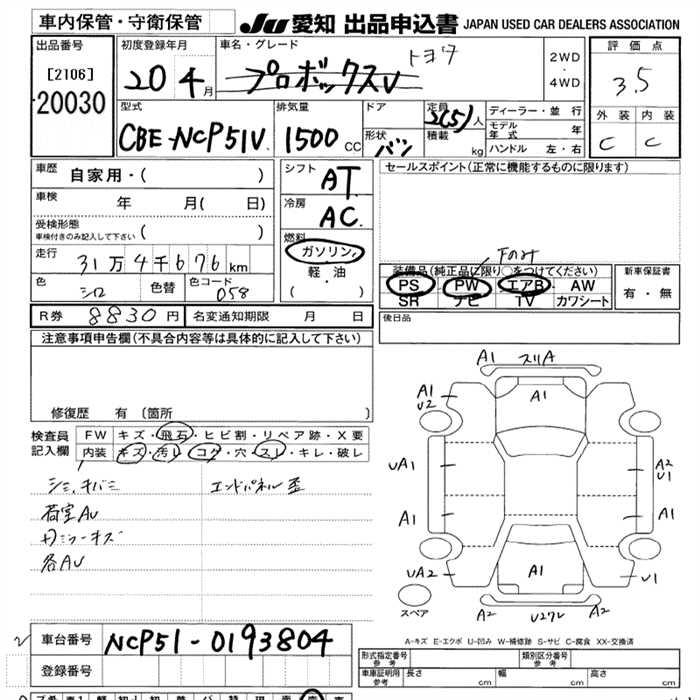 車内保管・守衛保管
JU 愛知 出品申込書 JAPAN USED CAR DEALERS ASSOCIATION
出品番号
[2106]
20030
初度登録年月
20 4月
車名・グレード
トヨタ
プロボックスV
2WD
・
4WD
評価点
3.5
外装 内装
C C
型式
CBE-NCP51V
排気量
1500 CC
ドア
形状
バン
定員
2(5)人
積載
kg
ディーラー・並行
モデル年式 年
ハンドル 左・右
車歴
自家用・( )
車検
年 月( 日)
受検形態
車検付きのみ記入して下さい ( )
走行
31万4千676km
色
シロ
色替
色コード
058
シフト
AT
冷房
AC
燃料
ガソリン
軽・油
・
( )
セールスポイント(正常に機能するものに限ります)
下のみ
装備品(純正品に限り○をつけてください)
PS PW エアB AW
SR ナビ TV カワシート
新車保証書
有・無
R券 8830円
名変通知期限 月 日
後日品
注意事項申告欄(不具合内容等は具体的に記入して下さい)
修復歴 有 〔箇所 〕
検査員記入欄
FW キズ・飛石・ヒビ割・リペア跡・X要
内装 キズ・汚レ・コゲ・穴・スレ・キレ・破レ
シミ、キバミ
エンドパネル歪
荷室AU
内ミラーキズ
各AU
A1 スリA
A1
U2
A1
UA1
A2
U1
A1
A1
UA2
A1
U1
スペア
A2
U27レ
A2
A-キズ E-エクボ U-凹み W-補修跡 S-サビ C-腐食 XX-交換済
車台番号
NCP51-0193804
登録番号
形式指定番号
参考
類別区分番号
参考
車庫証明用
参考
長さ cm
幅 cm
高さ cm